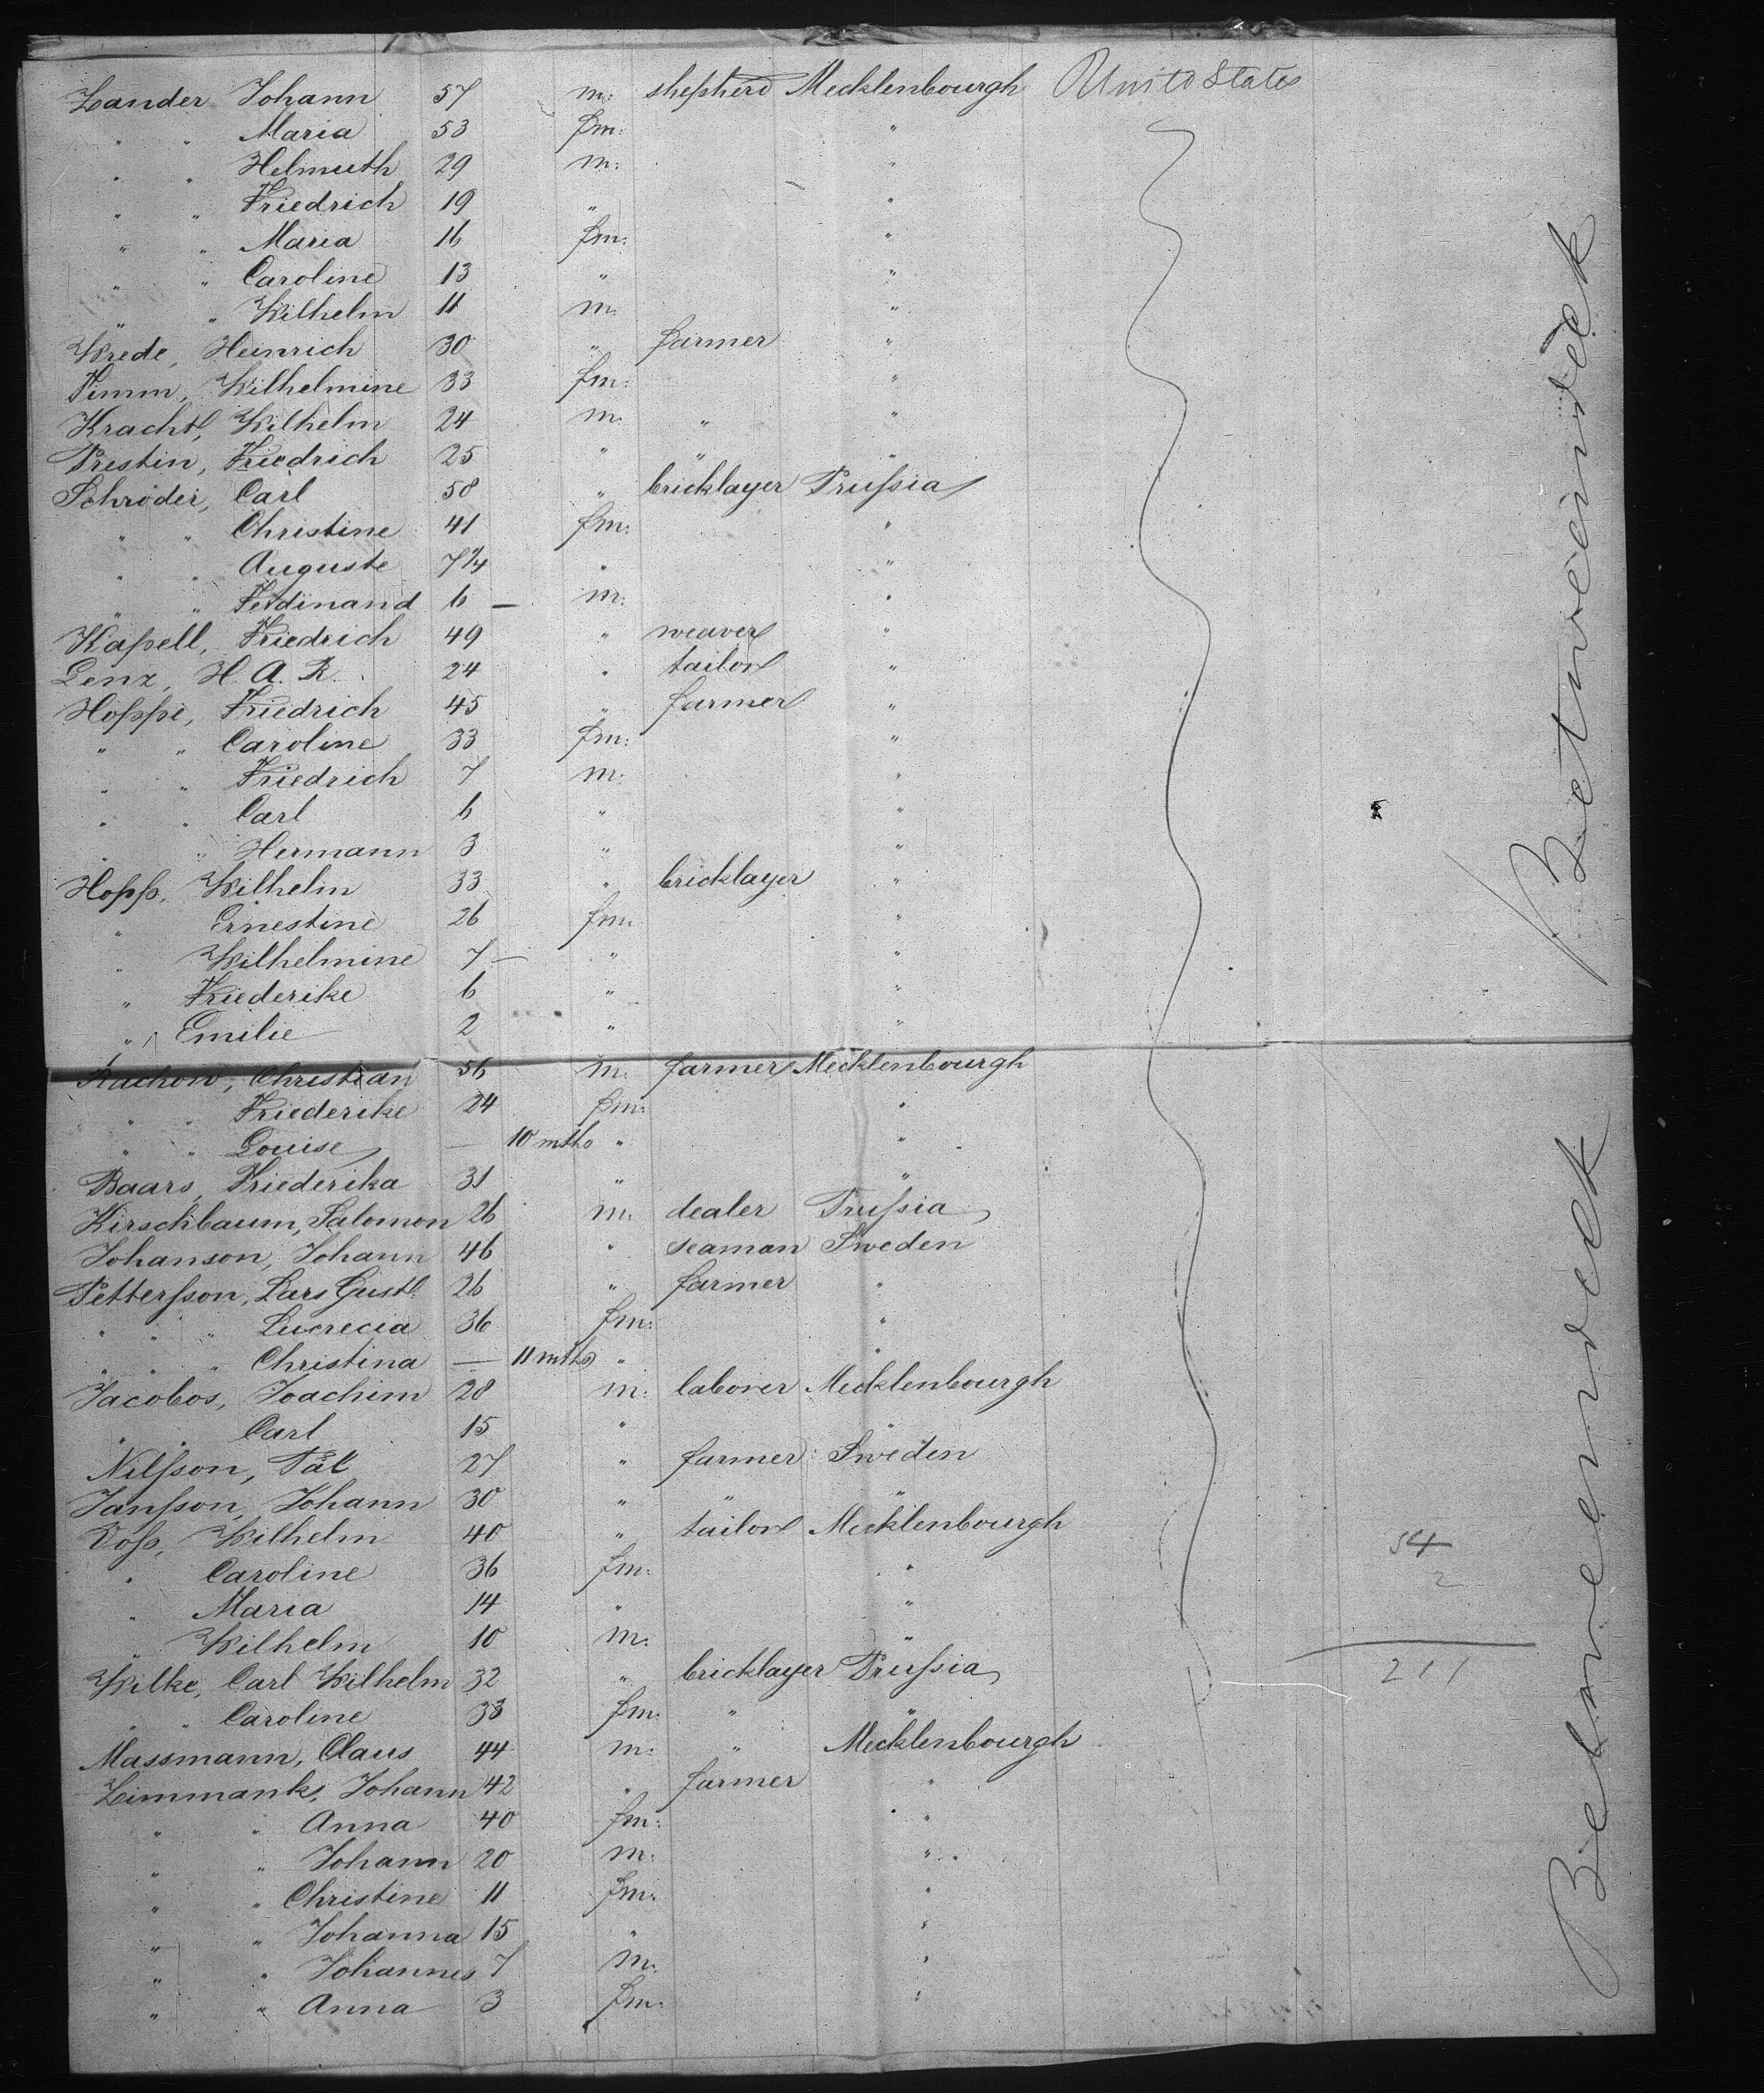 Zander Johann 57 m: shepherd Mecklenbourgh United States
" " Maria 53 fm: "
" " Helmuth 29 m: "
" " Friedrich 19 " "
" " Maria 16 fm: "
" " Caroline 13 " "
" " Wilhelm 11 m. "
Wrede, Heinrich 30 " farmer "
Timm, Wilhelmine 33 fm: "
Kracht, Wilhelm 24 m. " "
Prestin, Friedrich 25 " " "
Schröder, Carl 58 " bricklayer Prußia
" " Christine 41 fm: "
" " Auguste 7¼ " "
" " Ferdinand 6 — m: "
Kapell, Friedrich 49 " weaver "
Lenz, H. A. R. 24 " tailor "
Hoppe, Friedrich 45 " farmer "
" " Caroline 33 fm: "
" " Friedrich 7 m. "
" " Carl 6 " "
" " Hermann 3 " "
Hopp, Wilhelm 33 " bricklayer "
" Ernestine 26 fm: "
" Wilhelmine 7 — " "
" Friederike 6 " "
" Emilie 2 " "
Rachow, Christian 56 m. farmer Mecklenbourgh
" " Friederike 24 fm: "
" " Louise — 10 mths " "
Baars, Friederika 31 " "
Kirschbaum, Salomon 26 m. dealer Prußia
Johanson, Johann 46 " seaman Sweden
Petterßon, Lars Gustl. 26 " farmer "
" " " Lucrecia 36 fm: "
" " " Christina — 11 mths " "
Jacobos, Joachim 28 m: laborer Mecklenbourgh
" " Carl 15 " "
Nilßon, Pål 27 " farmer Sweden
Janßon, Johann 30 " " "
Voß, Wilhelm 40 " tailor Mecklenbourgh
" Caroline 36 fm: "
" Maria 14 " "
" Wilhelm 10 m. "
Wilke, Carl Wilhelm 32 " bricklayer Prußia
" " Caroline 33 fm. " "
Massmann, Claus 44 m: " Mecklenbourgh
Zimmank, Johann 42 " farmer "
" " Anna 40 fm: "
" " Johann 20 m: "
" " Christine 11 fm: "
" " Johanna 15 " "
" " Johannes 7 m. "
" " Anna 3 fm: "
54
2
211
Between deck
Between deck